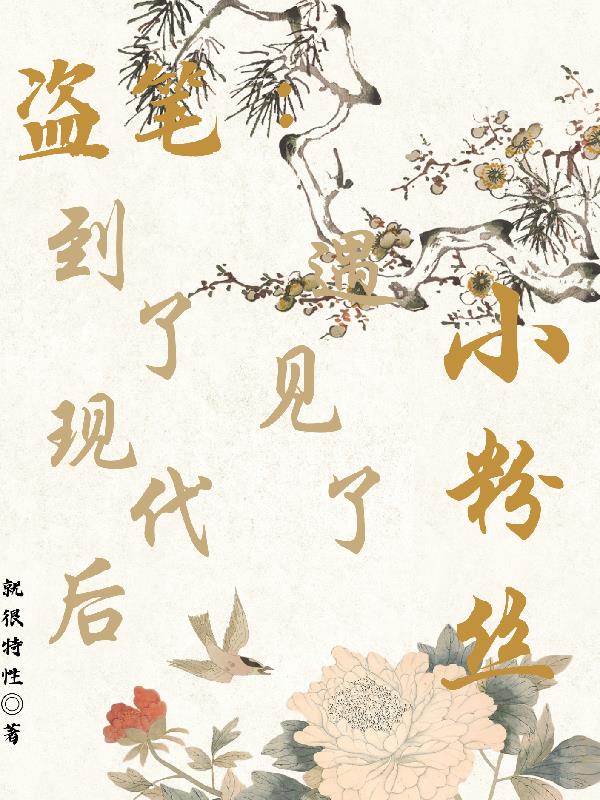 盗笔：
到了现代后
遇见了
小粉丝
就很特性◎著